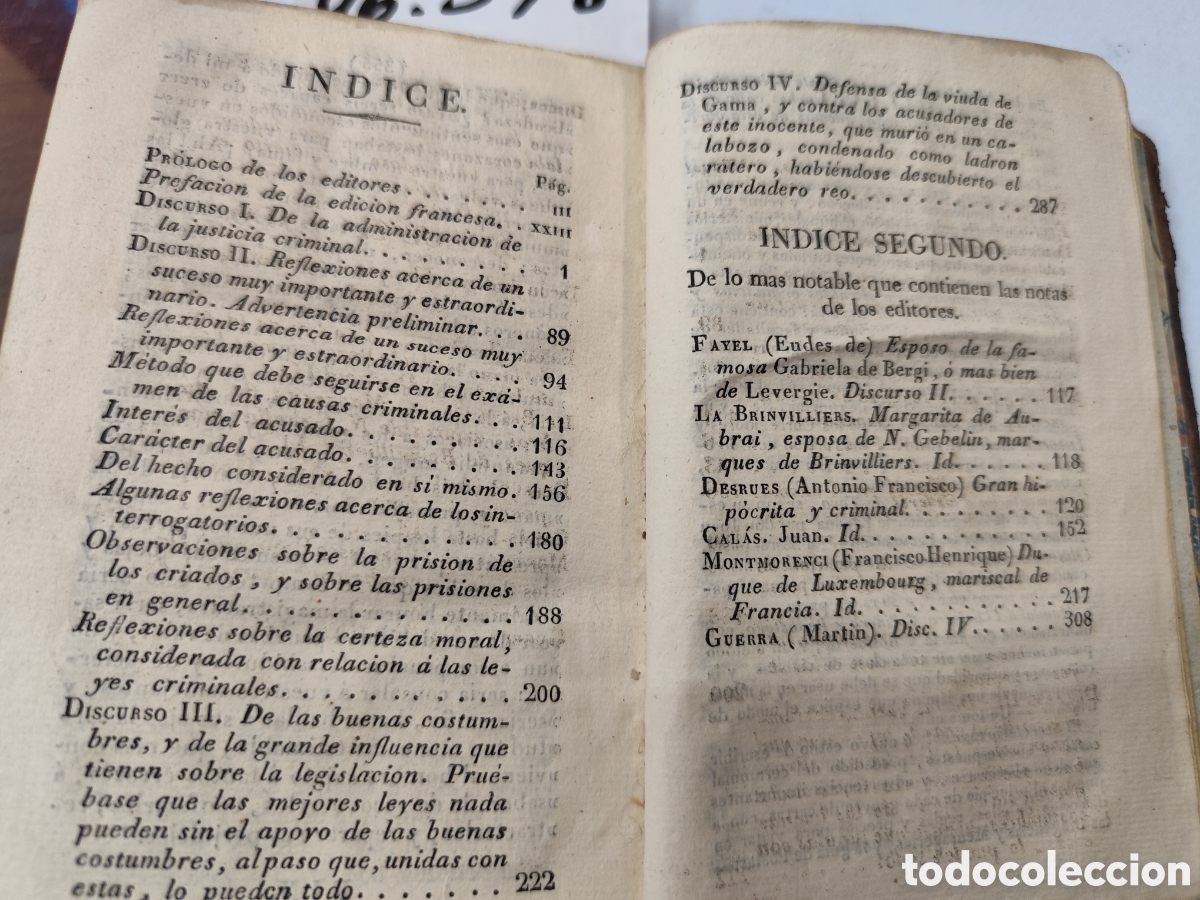 INDICE.
Pág.
PRÓLOGO de los editores. . . . . . . III
Prefacion de la edicion francesa. . XXIII
DISCURSO I. De la administracion de
la justicia criminal. . . . . . . . 1
DISCURSO II. Reflexiones acerca de un
suceso muy importante y estraordi-
nario. Advertencia preliminar. . . 89
Reflexiones acerca de un suceso muy
importante y estraordinario. . . . 94
Método que debe seguirse en el exá-
men de las causas criminales. . . 111
Interés del acusado. . . . . . . . 116
Carácter del acusado. . . . . . . . 143
Del hecho considerado en sí mismo. 156
Algunas reflexiones acerca de los in-
terrogatorios. . . . . . . . . . . 180
Observaciones sobre la prision de
los criados, y sobre las prisiones
en general. . . . . . . . . . . . 188
Reflexiones sobre la certeza moral,
considerada con relacion á las le-
yes criminales. . . . . . . . . . 200
DISCURSO III. De las buenas costum-
bres, y de la grande influencia que
tienen sobre la legislacion. Prué-
base que las mejores leyes nada
pueden sin el apoyo de las buenas
costumbres, al paso que, unidas con
estas, lo pueden todo. . . . . . . 222
DISCURSO IV. Defensa de la viuda de
Gama, y contra los acusadores de
este inocente, que murió en un ca-
labozo, condenado como ladron
ratero, habiéndose descubierto el
verdadero reo. . . . . . . . . . . 287
INDICE SEGUNDO.
De lo mas notable que contienen las notas
de los editores.
FAYEL (Eudes de) Esposo de la fa-
mosa Gabriela de Bergi, ó mas bien
de Levergie. Discurso II. . . . . . 117
LA BRINVILLIERS. Margarita de Au-
brai, esposa de N. Gebelin, mar-
ques de Brinvilliers. Id. . . . . . 118
DESRUES (Antonio Francisco) Gran hi-
pócrita y criminal. . . . . . . . . 120
CALÁS. Juan. Id. . . . . . . . . . . 152
MONTMORENCI (Francisco Henrique) Du-
que de Luxembourg, mariscal de
Francia. Id. . . . . . . . . . . . 217
GUERRA (Martin). Disc. IV. . . . . . 308
todocoleccion